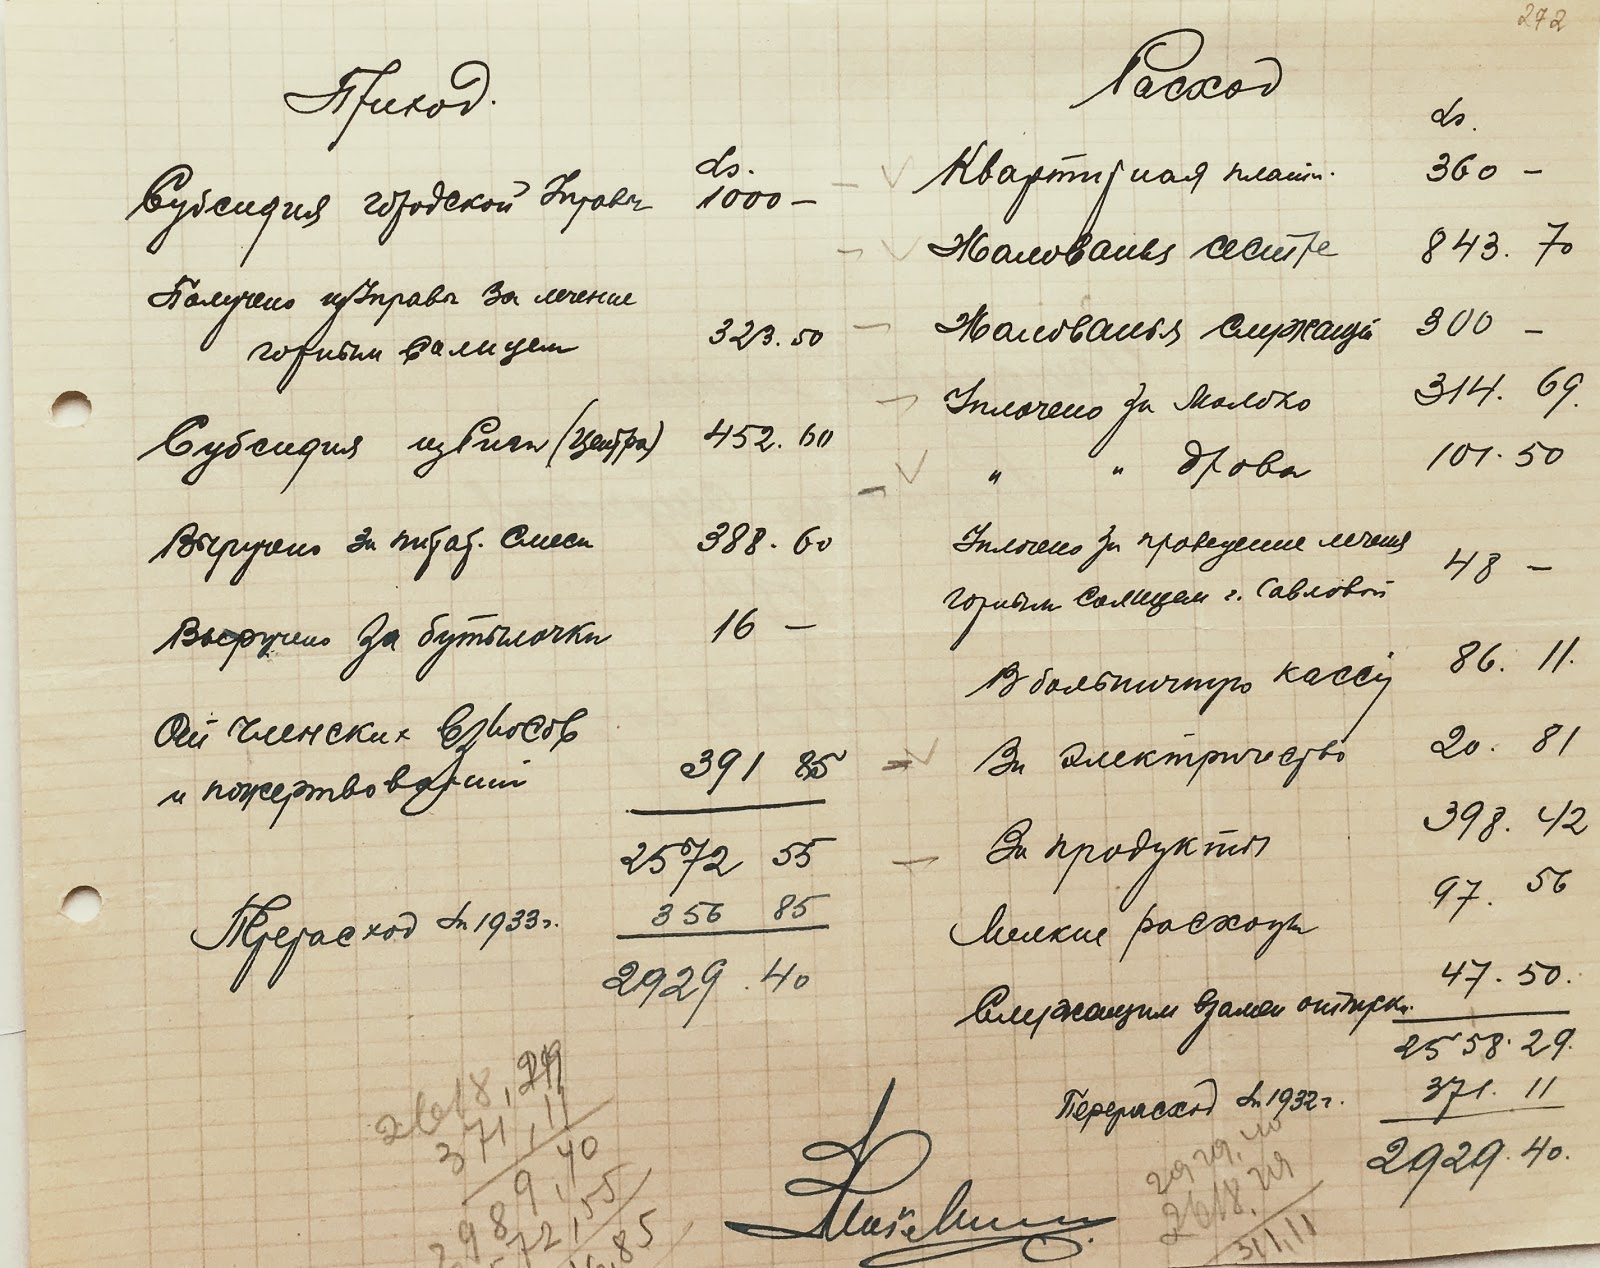 272
Приход.
Ls.
Субсидия городской Управы 1000 —
Получено из Управы за лечение
горным солнцем 323.50
Субсидия из Риги (Центра) 452.60
Выручено за питат. смеси 388.60
Выручено за бутылочки 16 —
От членских взносов
и пожертвований 391 85
2572 55
Перерасход за 1933 г. 356 85
2929.40
Расход
Ls.
Квартирная плат. 360 —
Жалованья сестре 843.70
Жалованья служащей 300 —
Уплочено за молоко 314.69.
" " дрова 101.50
Уплочено за проведение лечения
горным солнцем г. Павловой 48 —
В больничную кассу 86.11.
За электричество 20.81
За продукты 398.42
Мелкие расходы 97.56
Служащим взамен отпуска. 47.50.
2558.29.
Перерасход за 1932 г. 371.11
2929.40.
2618,29
371,11
2989,40
572,55
,85
2929,40
2618,29
311,11